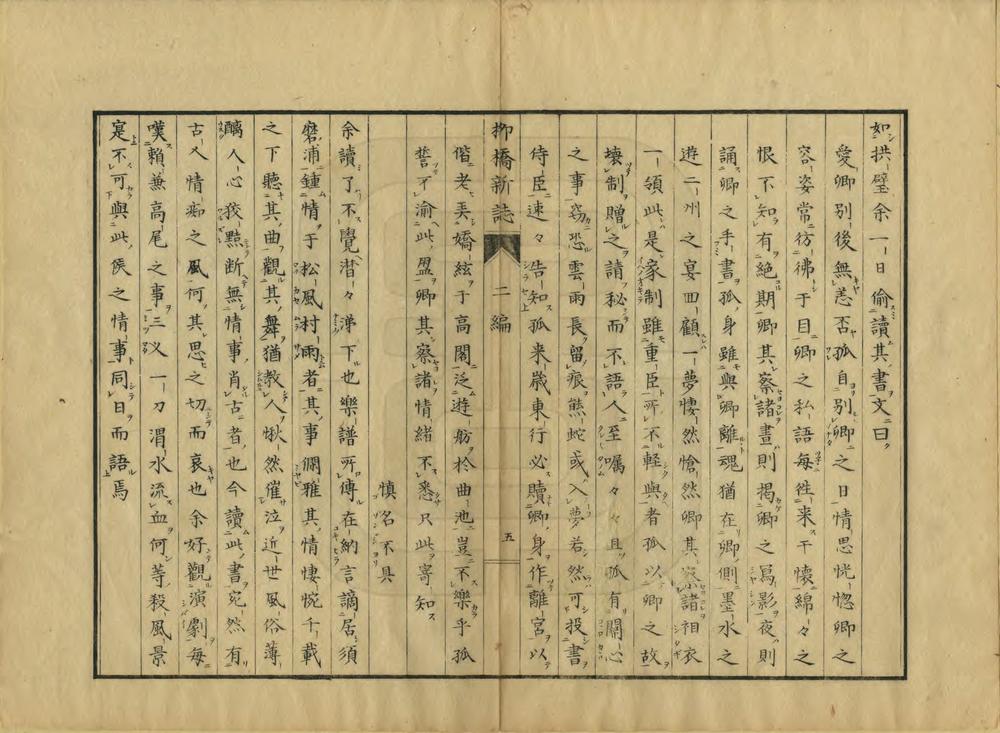 如拱璧余一日偷讀其書文曰
愛卿別後無恙否孤自別卿之日情思恍惚卿之
容姿常彷彿于目卿之私語每徃來于懷綿々之
恨不知有絕期卿其察諸晝則揭卿之寫影夜則
誦卿之手書孤身雖與卿離魂猶在卿側墨水之
遊二州之宴四顧一夢悽然愴然卿其察諸袒衣
一領此是家制雖重臣所不輕與者孤以卿之故
壞制贈之請秘而不語人至囑々々且孤有關心
之事窃恐雲雨長留痕熊蛇或入夢若然可投書
侍臣速々告知孤来歲東行必贖卿身作離宮以
柳橋新誌 二編 五
偕老美嬌絃于高閣泛遊舫於曲池豈不樂乎孤
誓不渝此盟卿其察諸情緒不悉只此寄知
慎名不具
余讀了不覺潸々涕下也樂譜所傳在納言謫居須
磨浦鍾情于松風村雨者其事㒹雅其情悽惋千載
之下聽其曲觀其舞猶教人愀然催泣近世風俗薄
醨人心狡黠断無情事肖古者也今讀此書宛然有
古人情痴之風何其思之切而哀也余好觀演劇每
嘆賴兼高尾之事三义一刀渭水流血何等殺風景
寔不可與此侯之情事同日而語焉